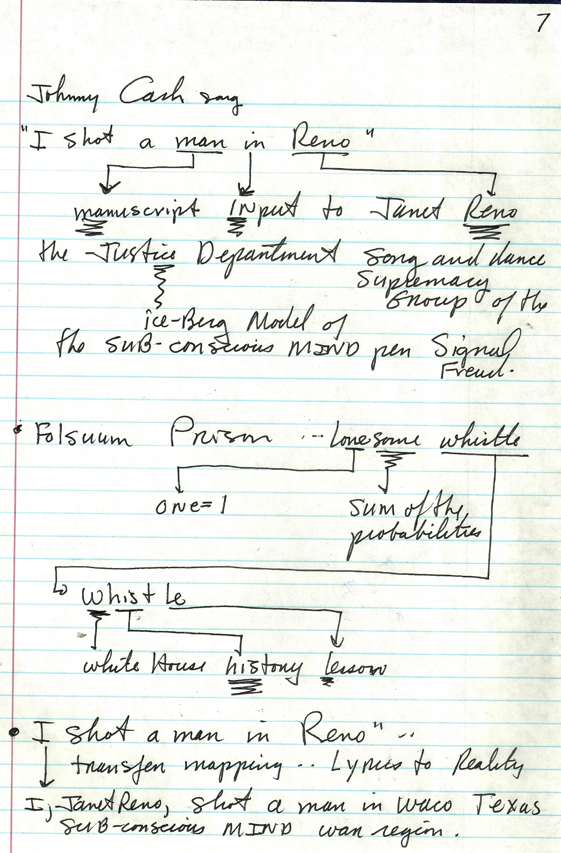 7
Johnny Cash song
"I shot a man in Reno"
manuscript INput to Janet Reno
the Justice Department song and dance
Supremacy
Group of the
ice-Berg Model of
the SUB-conscious MIND pen Signal
Freud.
• Folsuum Prison ... lonesome whistle
one=1
sum of the
probabilities
whist le
white House history lesson
• I shot a man in Reno" ..
transfer mapping .. Lyrics to Reality
I, Janet Reno, shot a man in Waco Texas
SUB-conscious MIND war region.